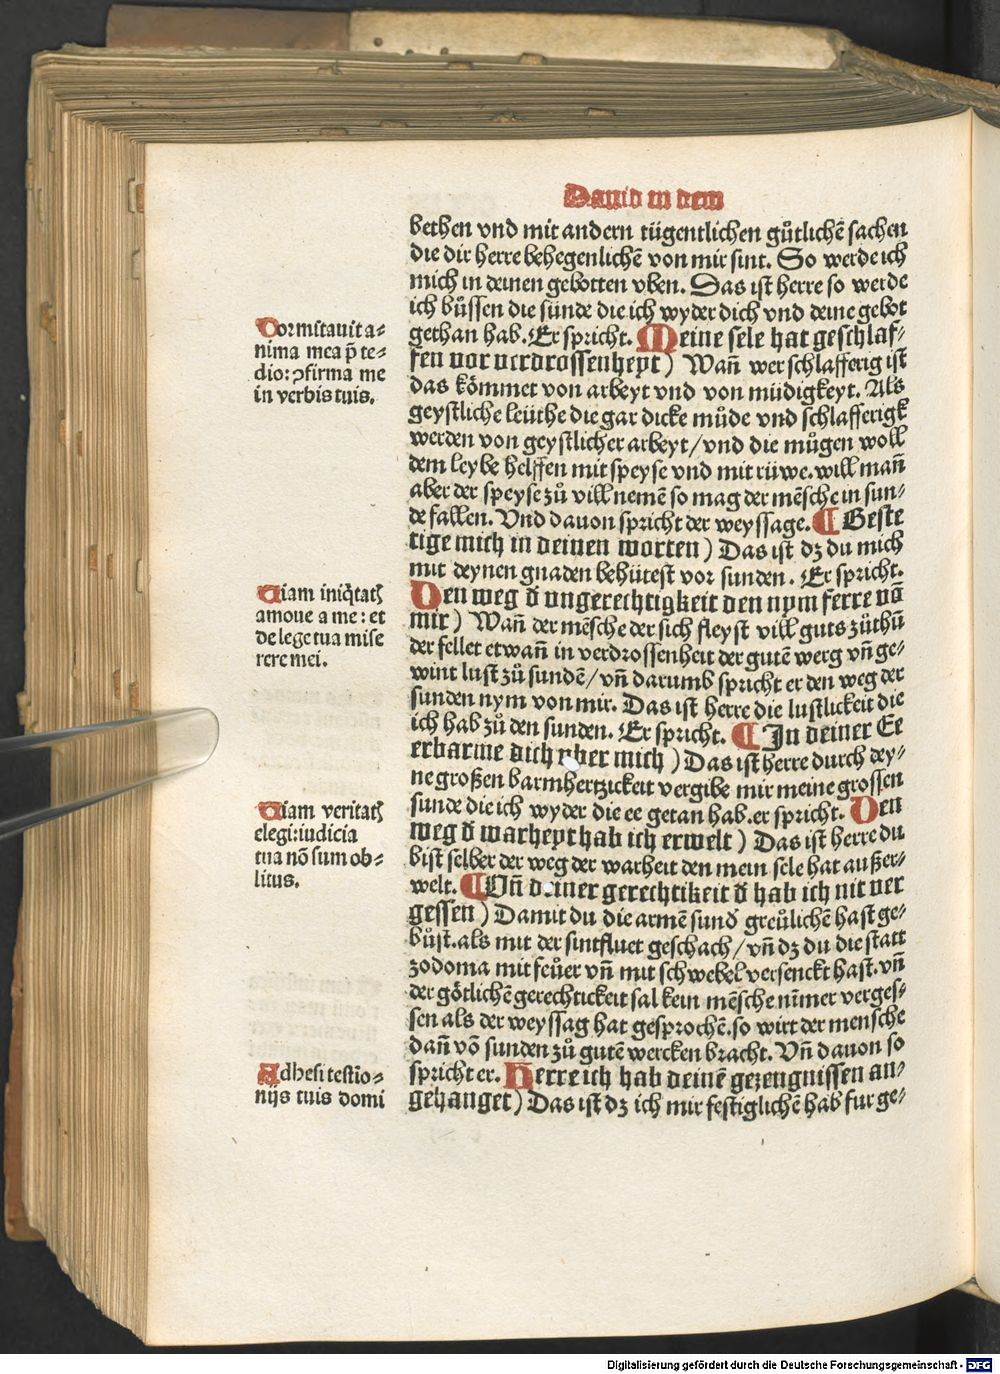 Dauid in dem
bethen vnd mit andern tügentlichen gůtlichẽ sachen
die dir herre behegenlichẽ von mir sint. So werde ich
mich in deinen gebotten vben. Das ist herre so werde
ich bůssen die sünde die ich wyder dich vnd deine gebot
gethan hab. Er spricht. Meine sele hat geschlaf⸗
fen vor verdrossenheyt) Wañ wer schlafferig ist
das kömmet von arbeyt vnd von müdigkeyt. Als
geystliche leüthe die gar dicke můde vnd schlafferigk
werden von geystlicher arbeyt/vnd die můgen woll
dem leybe helffen mit speyse vnd mit rüwe. will mañ
aber der speyse zů vill nemẽ so mag der mẽsche in sun⸗
de fallen. Vnd dauon spricht der weyssage. ¶ Beste
tige mich in deinen worten) Das ist dz du mich
mit deynen gnaden behütest vor sunden. Er spricht.
Den weg đ vngerechtigkeit den nym ferre võ
mir) Wañ der mẽsche der sich fleyst vill guts zůthů
der fellet etwañ in verdrossenheit der gutẽ werg vñ ge⸗
wint lust zů sundẽ/vñ darumb spricht er den weg der
sunden nym von mir. Das ist herre die lustlickeit die
ich hab zů den sunden. Er spricht. ¶ In deiner Ee
erbarme dich vber mich) Das ist herre durch dey⸗
ne großen barmhertzickeit vergibe mir meine grossen
sunde die ich wyder die ee getan hab. er spricht. Den
weg đ warheyt hab ich erwelt) Das ist herre du
bist selber der weg der warheit den mein sele hat außer⸗
welt. ¶ Vñ deiner gerechtikeit đ hab ich nit ver
gessen) Damit du die armẽ sunđ greůlichẽ hast ge⸗
bůst. als mit der sintfluet geschach/vñ dz du die statt
zodoma mit feůer vñ mit schwebel versenckt hast. vñ
der götlichẽ gerechtickeit sal kein mẽsche nīmer verges⸗
sen als der weyssag hat gesprochẽ. so wirt der mensche
dañ võ sunden zů gutẽ wercken bracht. Vñ dauon so
spricht er. Herre ich hab deinẽ gezeugnissen an⸗
gehanget) Das ist dz ich mir festiglichẽ hab fur ge⸗
Dormitauit a⸗
nima mea p̄ te⸗
dio: ꝯfirma me
in verbis tuis.
Uiam iniq̃tatꝭ
amoue a me: et
de lege tua mise
rere mei.
Uiam veritatꝭ
elegi: iudicia
tua nõ sum ob⸗
litus.
Adhesi testio⸗
nijs tuis domi
Digitalisierung gefördert durch die Deutsche Forschungsgemeinschaft - DFG